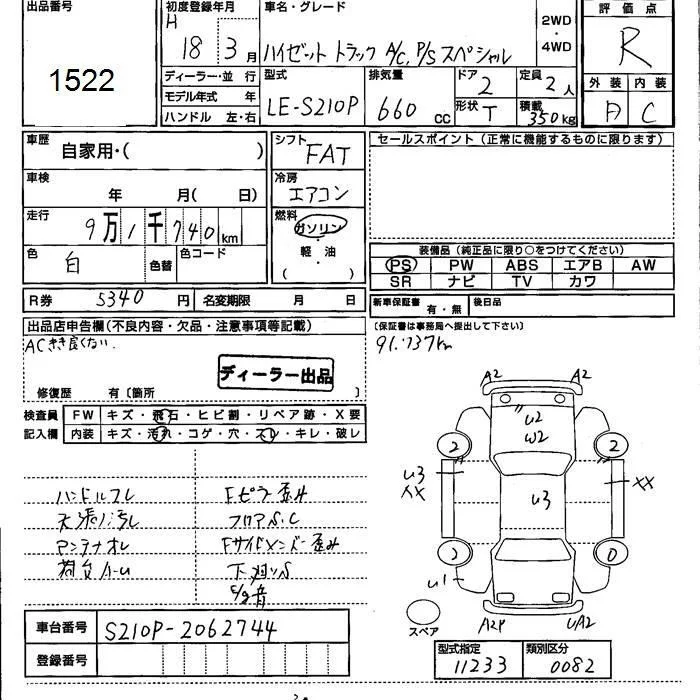 出品番号
1522
初度登録年月
H 18 3 月
車名・グレード
ハイゼット トラック A/C, P/S スペシャル
2WD
・
4WD
評価点
R
ディーラー・並 行
モデル年式 年
ハンドル 左・右
型式
LE-S210P
排気量
660 cc
ドア 2
形状 T
定員 2人
積載 350kg
外装 内装
A C
車歴
自家用・( )
車検
年 月( 日)
走行
9万1千740km
色
白
色替
色コード
シフト
FAT
冷房
エアコン
燃料
ガソリン
・
軽・油
( )
セールスポイント(正常に機能するものに限ります)
装備品(純正品に限り○をつけてください)
PS PW ABS エアB AW
SR ナビ TV カワ
R券 5340 円 名変期限 月 日
新車保証書 有・無 後日品
(保証書は事務局へ提出して下さい)
出品店申告欄(不良内容・欠品・注意事項等記載)
ACきき良くない.
ディーラー出品
修復歴 有〔箇所 〕
91.737km
検査員
記入欄
FW キズ・飛石・ヒビ割・リペア跡・X要
内装 キズ・汚れ・コゲ・穴・スレ・キレ・破レ
ハンドルスレ
天張り汚レ
アンテナオレ
Fピラー歪み
フロアS.C
Fサイドメンバー歪み
下廻りS
A2 A2
U2
W2
2 2
U3
XX
U3
XX
0
U1
A2P UA2
スペア
車台番号 S210P-2062744
登録番号
型式指定 類別区分
11233 0082